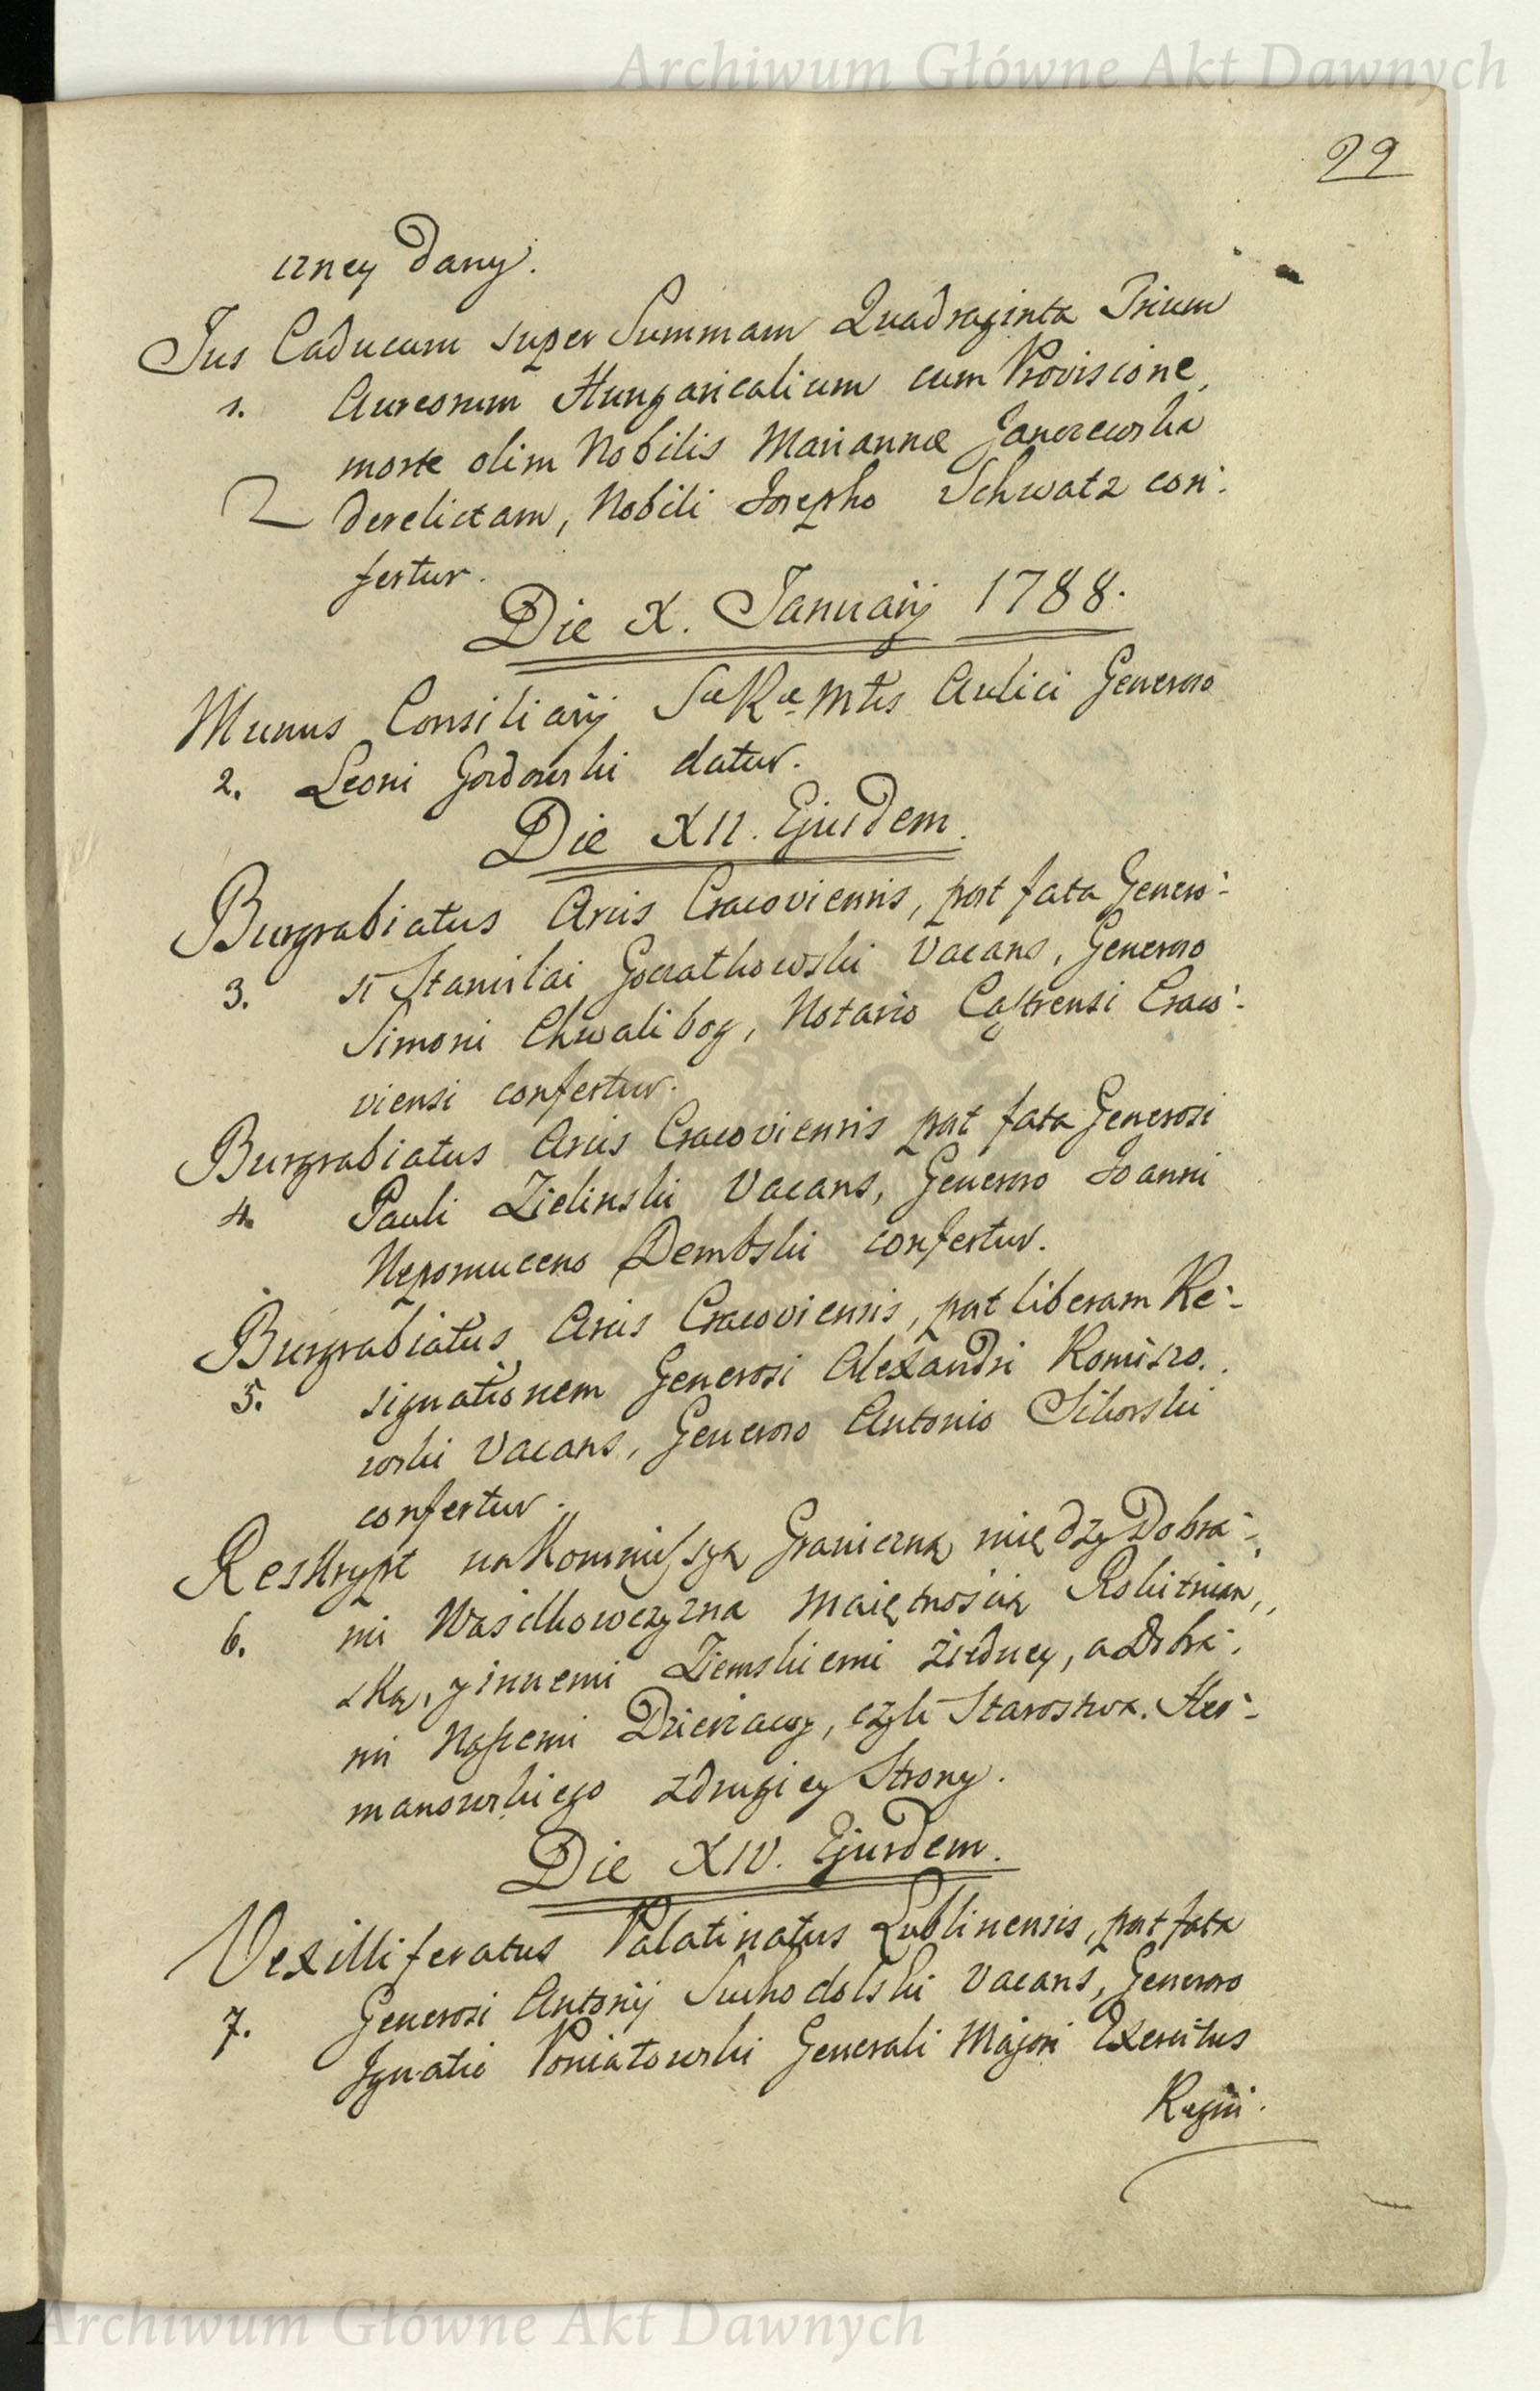 Archiwum Główne Akt Dawnych
99
czney dany.
Jus Caducum super Summam Quadraginta Trium
1. Aureorum Hungaricalium cum Provisione,
morte olim Nobilis Mariannæ Janczewska
derelictam, Nobili Josepho Schwatz con-
fertur.
Die X. Januarij 1788.
Munus Consiliarij Sæ Ræ Mtis Aulici Generoso
2. Leoni Gordowski datur.
Die XII. Ejusdem.
Burgrabiatus Arcis Cracoviensis, post fata Genero-
3. si Stanislai Goczałkowski Vacans, Generoso
Simoni Chwalibog, Notario Castrensi Craco-
viensi confertur.
Burgrabiatus Arcis Cracoviensis post fata Generosi
4. Pauli Zielinski Vacans, Generoso Joanni
Nepomuceno Dembski confertur.
Burgrabiatus Arcis Cracoviensis, post liberam Re-
5. signationem Generosi Alexandri Romiszo-
wski Vacans, Generoso Antonio Sikorski
confertur.
Reskrypt na Kommissyą Graniczną między Dobra-
6. mi Wasilkowczyzna Maiętnością Rokitnian-
ską, y innemi Ziemskiemi z iedney, a Dobra-
mi Naszemi Dzierżawy, czyli Starostwa Her-
manowskiego z drugiey Strony.
Die XIV. Ejusdem.
Vexilliferatus Palatinatus Lublinensis, post fata
7. Generosi Antonij Suchodolski Vacans, Generoso
Ignatio Poniatowski Generali Majori Exercitus
Regni.
Archiwum Główne Akt Dawnych